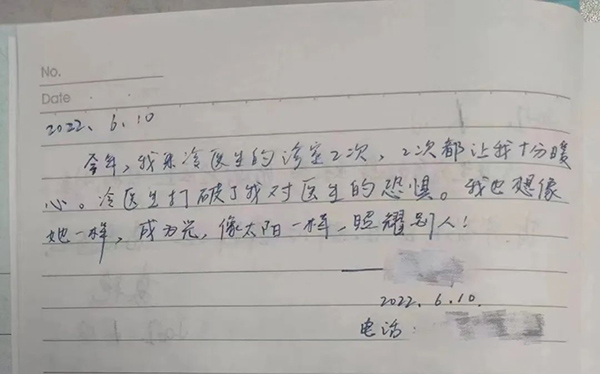 No.
Date
2022. 6. 10
今年，我来冷医生的诊室2次，2次都让我十分暖
心。冷医生打破了我对医生的恐惧。我也想像
她一样，成为光，像太阳一样，照耀别人！
2022. 6. 10.
电话：